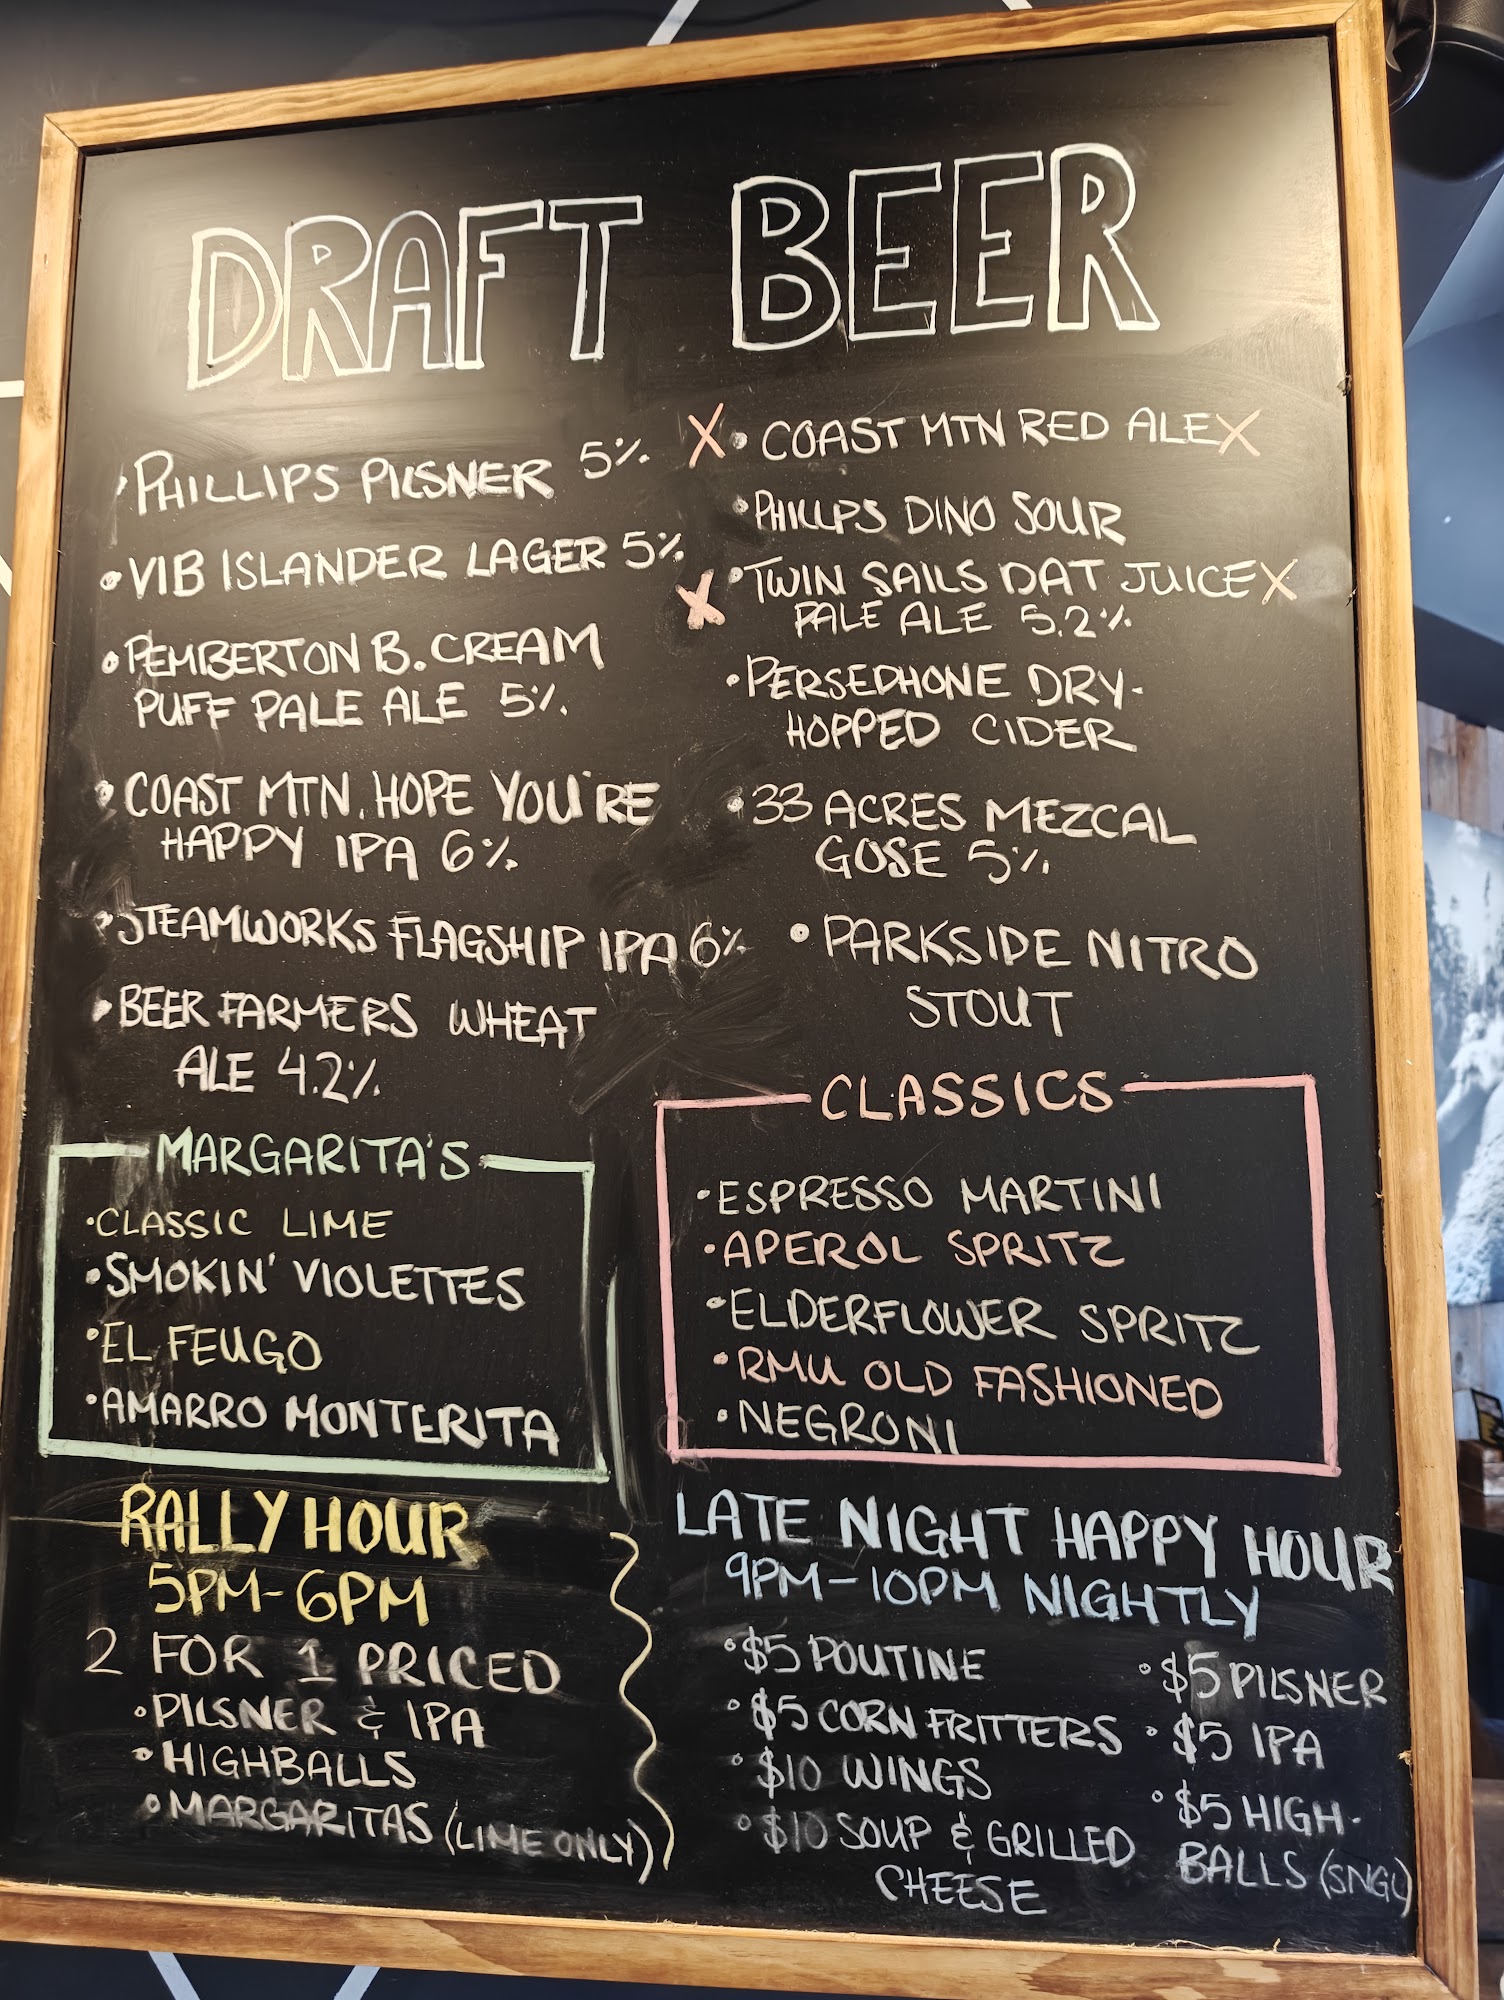 DRAFT BEER
• PHILLIPS PILSNER 5%
• VIB ISLANDER LAGER 5%
• PEMBERTON B. CREAM
PUFF PALE ALE 5%
• COAST MTN. HOPE YOU'RE
HAPPY IPA 6%
• STEAMWORKS FLAGSHIP IPA 6%
• BEER FARMERS WHEAT
ALE 4.2%
X • COAST MTN RED ALE X
• PHILLPS DINO SOUR
X • TWIN SAILS DAT JUICE X
PALE ALE 5.2%
• PERSEPHONE DRY-
HOPPED CIDER
• 33 ACRES MEZCAL
GOSE 5%
• PARKSIDE NITRO
STOUT
MARGARITA'S
• CLASSIC LIME
• SMOKIN' VIOLETTES
• EL FEUGO
• AMARRO MONTERITA
CLASSICS
• ESPRESSO MARTINI
• APEROL SPRITZ
• ELDERFLOWER SPRITZ
• RMU OLD FASHIONED
• NEGRONI
RALLY HOUR
5PM-6PM
2 FOR 1 PRICED
• PILSNER & IPA
• HIGHBALLS
• MARGARITAS (LIME ONLY)
LATE NIGHT HAPPY HOUR
9PM-10PM NIGHTLY
• $5 POUTINE
• $5 CORN FRITTERS
• $10 WINGS
• $10 SOUP & GRILLED
CHEESE
• $5 PILSNER
• $5 IPA
• $5 HIGH-
BALLS (SNGL)